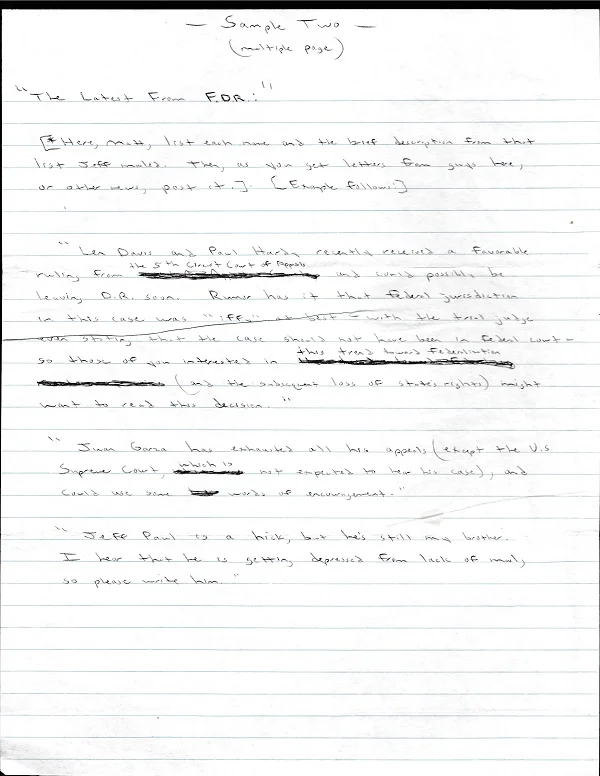 — Sample Two —
(multiple page)
"The Latest From F.D.R.:"
[*Here, Matt, list each name and the brief description from that
list Jeff mailed. Then, as you get letters from guys here,
or other news, post it.]. [Example follows:]
"Len Davis and Paul Hardy recently received a favorable
the 5th Circuit Court of Appeals
ruling from and could possibly be
leaving D.R. soon. Rumor has it that federal jurisdiction
in this case was "iffy" at best – with the trial judge
even stating that the case should not have been in federal court –
this trend toward federalization
so those of you interested in
(and the subsequent loss of state's rights) might
want to read this decision."
"Juan Garza has exhausted all his appeals (except the U.S
Supreme Court, which is not expected to hear his case), and
could use some words of encouragement."
"Jeff Paul is a hick, but he's still my brother.
I hear that he is getting depressed from lack of mail,
so please write him."